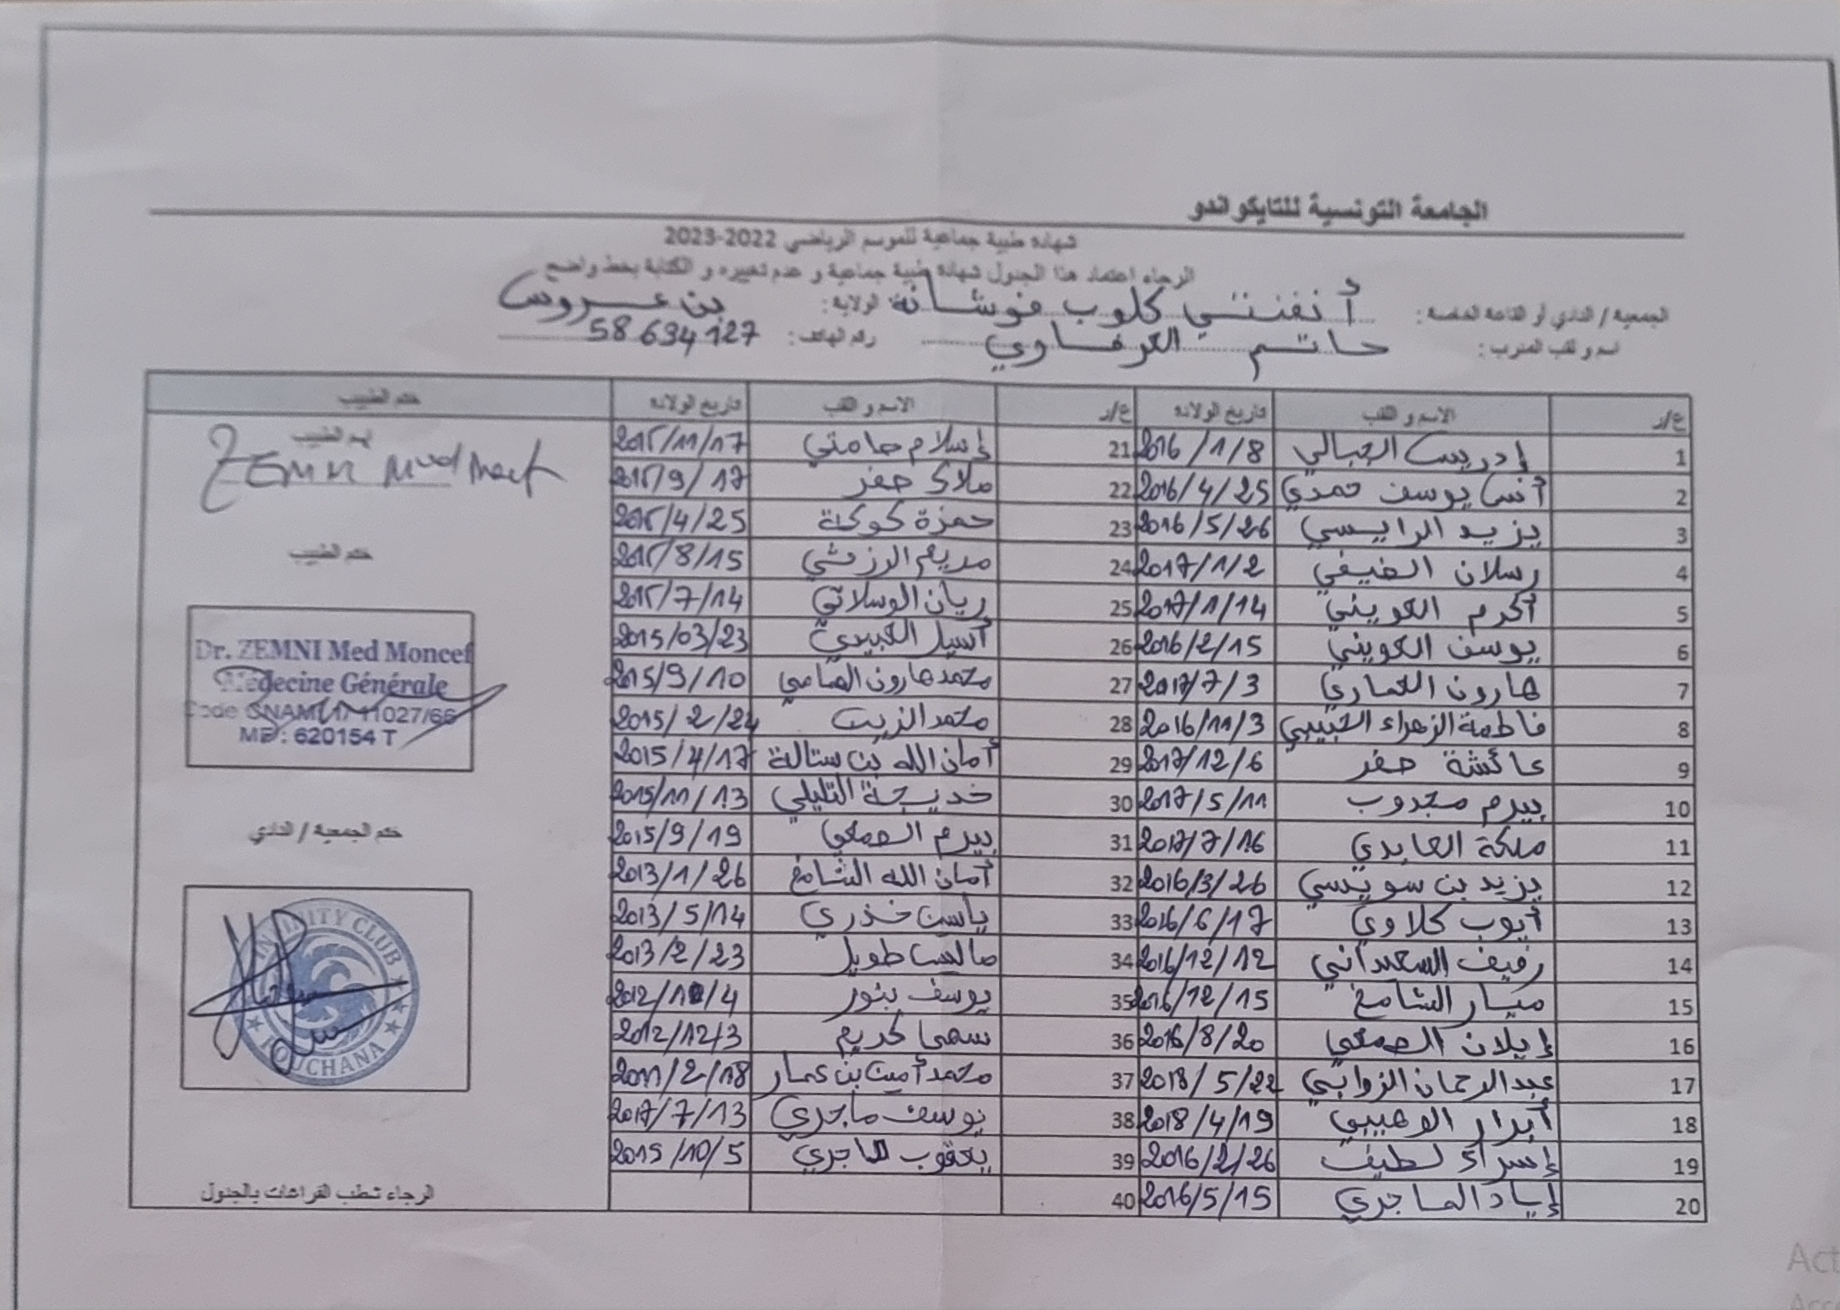 الجامعة التونسية للتايكواندو
شهادة طبية جماعية للموسم الرياضي 2022-2023
الرجاء اعتماد هذا الجدول شهادة طبية جماعية و عدم تغييره و الكتابة بخط واضح
الجمعية / النادي أو القاعة الخاصة: أنفنتي كلوب فوشانة الولاية: بن عروس
اسم و لقب المدرب: حاتم العرفاوي رقم الهاتف: 58634127
ع/ر الاسم و اللقب تاريخ الولادة ع/ر الاسم و اللقب تاريخ الولادة ختم الطبيب
1 إدريس الجبالي 2016/1/8 21 إسلام حامتي 2015/11/17
2 أنس يوسف حمدي 2016/4/25 22 ملاك جفر 2015/9/17
3 يزيد الرايسي 2016/5/26 23 حمزة كوكة 2015/4/25
4 رسلان الضيفي 2017/1/2 24 مريم الرزقي 2015/8/15
5 أكرم الكويني 2017/1/14 25 ريان الوسلاتي 2015/7/14
6 يوسف الكويني 2016/2/15 26 أسيل العبيدي 2015/03/23
7 هارون العماري 2017/7/3 27 محمد هارون 2015/9/10
8 فاطمة الزهراء الحبيبي 2016/11/3 28 محمد الزيت 2015/2/24
9 عائشة جفر 2017/12/6 29 أمان الله بن ستالة 2015/4/17
10 بيرم مجدوب 2017/5/11 30 خديجة التليلي 2015/11/13
11 ملكة العابدي 2017/7/16 31 بيرم الصمعي 2015/9/19
12 يزيد بن سويسي 2016/3/26 32 أمان الله الشامخ 2013/1/26
13 أيوب كلاوي 2016/6/17 33 ياسين خذري 2013/5/14
14 رفيف السعيداني 2016/12/12 34 طويل 2013/2/23
15 ميار الشامخ 2016/12/15 35 يوسف بنور
16 إيلان الصمعي 2016/8/20 36 سهى كريم 2012/12/3
17 عبد الرحمان الزوابي 2018/5/22 37 محمد أمين بن عمار 2011/2/18
18 أبرار الاهيبي 2018/4/19 38 يوسف ماجري 2017/7/13
19 إسراء لطيف 2016/2/26 39 يعقوب الماجري 2015/10/5
20 إياد الماجري 2016/5/15 40
اسم الطبيب
ZEMNI Med Moncef
ختم الطبيب
Dr. ZEMNI Med Moncef
Médecine Générale
Code CNAM 1/11027/66
620154 T
ختم الجمعية / النادي
INFINITY CLUB
FOUCHANA
الرجاء شطب الفراغات بالجدول
Act